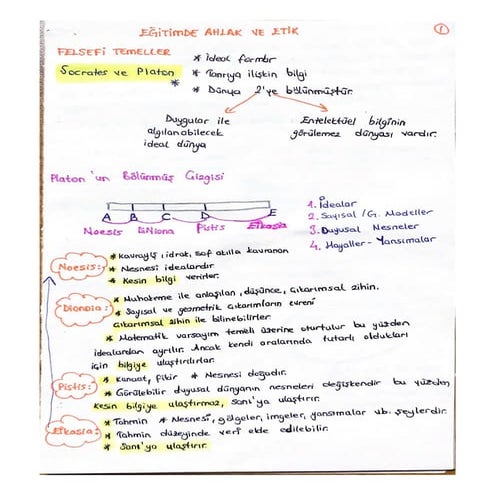 EĞİTİMDE AHLAK VE ETİK
1
FELSEFİ TEMELLER
* İdeal formlar
Socrates ve Platon * Tanrıya ilişkin bilgi
* * Dünya 2'ye bölünmüştür.
Duygular ile algılanabilecek ideal dünya
Entelektüel bilginin görülemez dünyası vardır.
Platon'un Bölünmüş Çizgisi
A B C D E
Noesis Diniona Pistis Eikasia
1. İdealar
2. Sayısal / G. Modeller
3. Duyusal Nesneler
4. Hayaller - Yansımalar
Noesis: * Kavrayış, idrak, saf akılla kavranan
* Nesnesi idealardır
* Kesin bilgi verirler.
Dionoia: * Muhakeme ile anlaşılan, düşünce, çıkarımsal zihin.
* Sayısal ve geometrik çıkarımların evreni
çıkarımsal zihin ile bilinebilirler
* Matematik varsayım temeli üzerine oturtulur bu yüzden
idealardan ayrılır. Ancak kendi aralarında tutarlı oldukları
için bilgiye ulaştırılırlar.
Pistis: * Kanaat, fikir * Nesnesi doğadır.
* Görülebilir duyusal dünyanın nesneleri değişkendir bu yüzden
kesin bilgiye ulaştırmaz, sanı'ya ulaştır.
Eikasia: * Tahmin * Nesnesi, gölgeler, imgeler, yansımalar vb. şeylerdir.
* Tahmin düzeyinde veri elde edilebilir.
* Sanı'ya ulaştır.